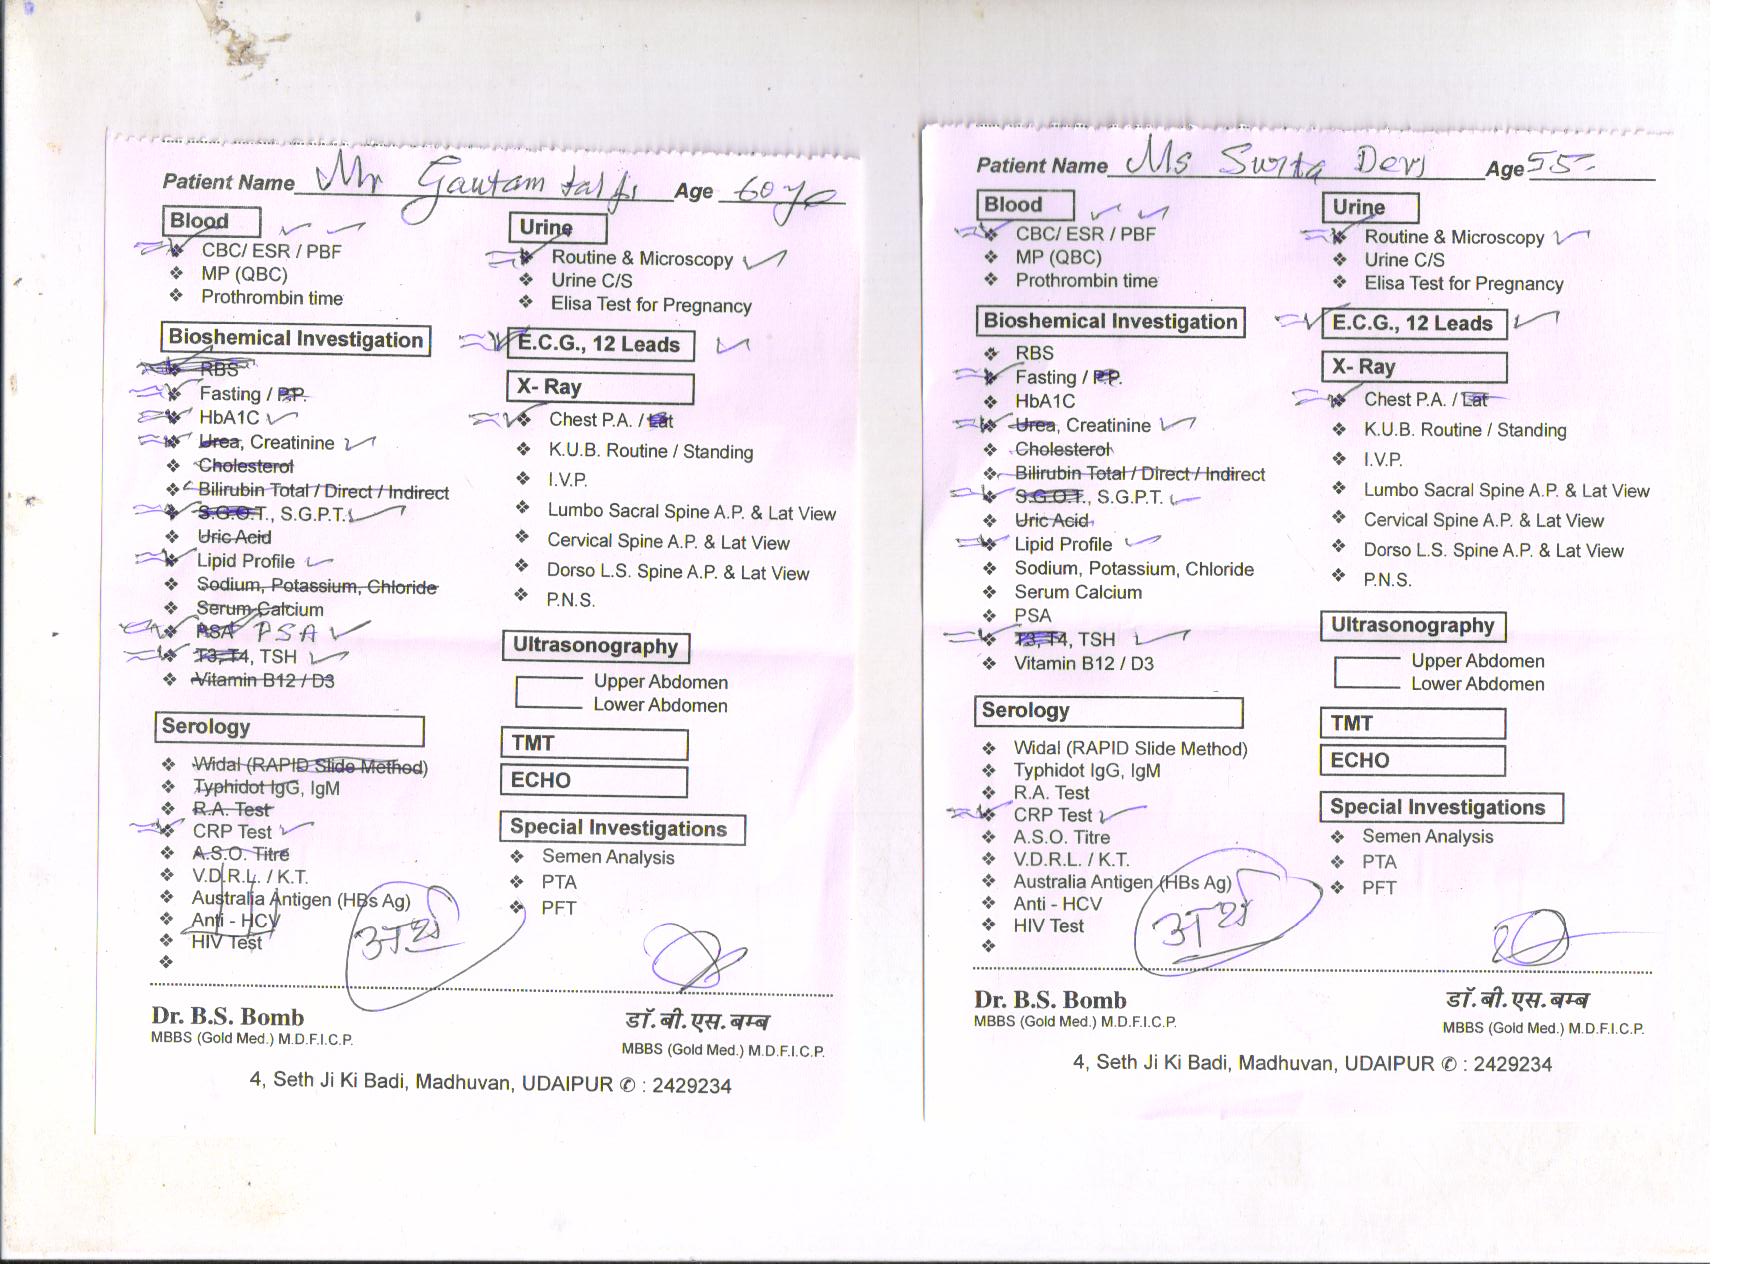 Patient Name Mr Gautam Lal Ji Age 60 yr
Blood
CBC/ ESR / PBF
MP (QBC)
Prothrombin time
Bioshemical Investigation
RBS
Fasting / P.P.
HbA1C
Urea, Creatinine
Cholesterol
Bilirubin Total / Direct / Indirect
S.G.O.T., S.G.P.T.
Uric Acid
Lipid Profile
Sodium, Potassium, Chloride
Serum Calcium
PSA PSA
T3, T4, TSH
Vitamin B12 / D3
Serology
Widal (RAPID Slide Method)
Typhidot IgG, IgM
R.A. Test
CRP Test
A.S.O. Titre
V.D.R.L. / K.T.
Australia Antigen (HBs Ag)
Anti - HCV
HIV Test
Urine
Routine & Microscopy
Urine C/S
Elisa Test for Pregnancy
E.C.G., 12 Leads
X- Ray
Chest P.A. / Lat
K.U.B. Routine / Standing
I.V.P.
Lumbo Sacral Spine A.P. & Lat View
Cervical Spine A.P. & Lat View
Dorso L.S. Spine A.P. & Lat View
P.N.S.
Ultrasonography
Upper Abdomen
Lower Abdomen
TMT
ECHO
Special Investigations
Semen Analysis
PTA
PFT
Dr. B.S. Bomb
MBBS (Gold Med.) M.D.F.I.C.P.
डॉ. बी. एस. बम्ब
MBBS (Gold Med.) M.D.F.I.C.P.
4, Seth Ji Ki Badi, Madhuvan, UDAIPUR ✆ : 2429234
Patient Name Ms Devi Age 55
Blood
CBC/ ESR / PBF
MP (QBC)
Prothrombin time
Bioshemical Investigation
RBS
Fasting / P.P.
HbA1C
Urea, Creatinine
Cholesterol
Bilirubin Total / Direct / Indirect
S.G.O.T., S.G.P.T.
Uric Acid
Lipid Profile
Sodium, Potassium, Chloride
Serum Calcium
PSA
T3, T4, TSH
Vitamin B12 / D3
Serology
Widal (RAPID Slide Method)
Typhidot IgG, IgM
R.A. Test
CRP Test
A.S.O. Titre
V.D.R.L. / K.T.
Australia Antigen (HBs Ag)
Anti - HCV
HIV Test
Urine
Routine & Microscopy
Urine C/S
Elisa Test for Pregnancy
E.C.G., 12 Leads
X- Ray
Chest P.A. / Lat
K.U.B. Routine / Standing
I.V.P.
Lumbo Sacral Spine A.P. & Lat View
Cervical Spine A.P. & Lat View
Dorso L.S. Spine A.P. & Lat View
P.N.S.
Ultrasonography
Upper Abdomen
Lower Abdomen
TMT
ECHO
Special Investigations
Semen Analysis
PTA
PFT
Dr. B.S. Bomb
MBBS (Gold Med.) M.D.F.I.C.P.
डॉ. बी. एस. बम्ब
MBBS (Gold Med.) M.D.F.I.C.P.
4, Seth Ji Ki Badi, Madhuvan, UDAIPUR ✆ : 2429234